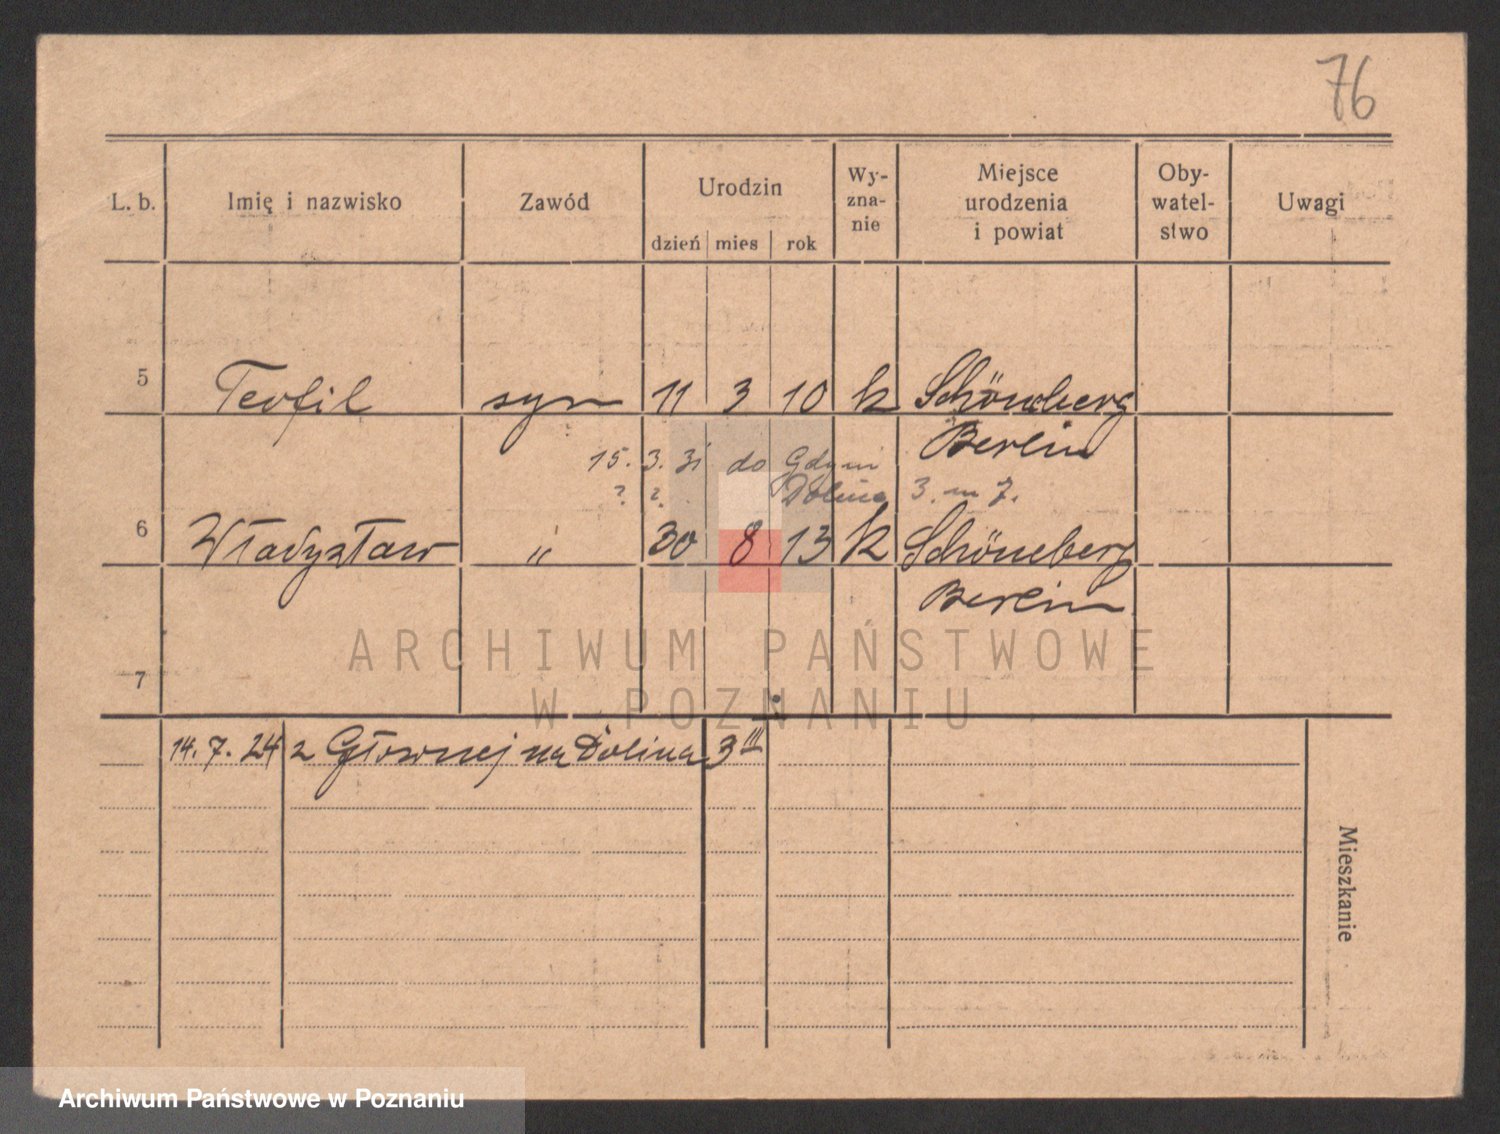 76
L. b. Imię i nazwisko Zawód Urodzin Wy-zna-nie Miejsce urodzenia i powiat Oby-watel-stwo Uwagi
dzień mies rok
5 Teofil syn 11 3 10 k Schöneberg
Berlin
15. 3. 31 do Gdyni
? ? Dolina 3. m 7.
6 Władysław " 30 8 13 k Schöneberg
Berlin
7
14. 7. 24 z Głównej na Dolina 3 III
Mieszkanie
ARCHIWUM PAŃSTWOWE
W POZNANIU
Archiwum Państwowe w Poznaniu